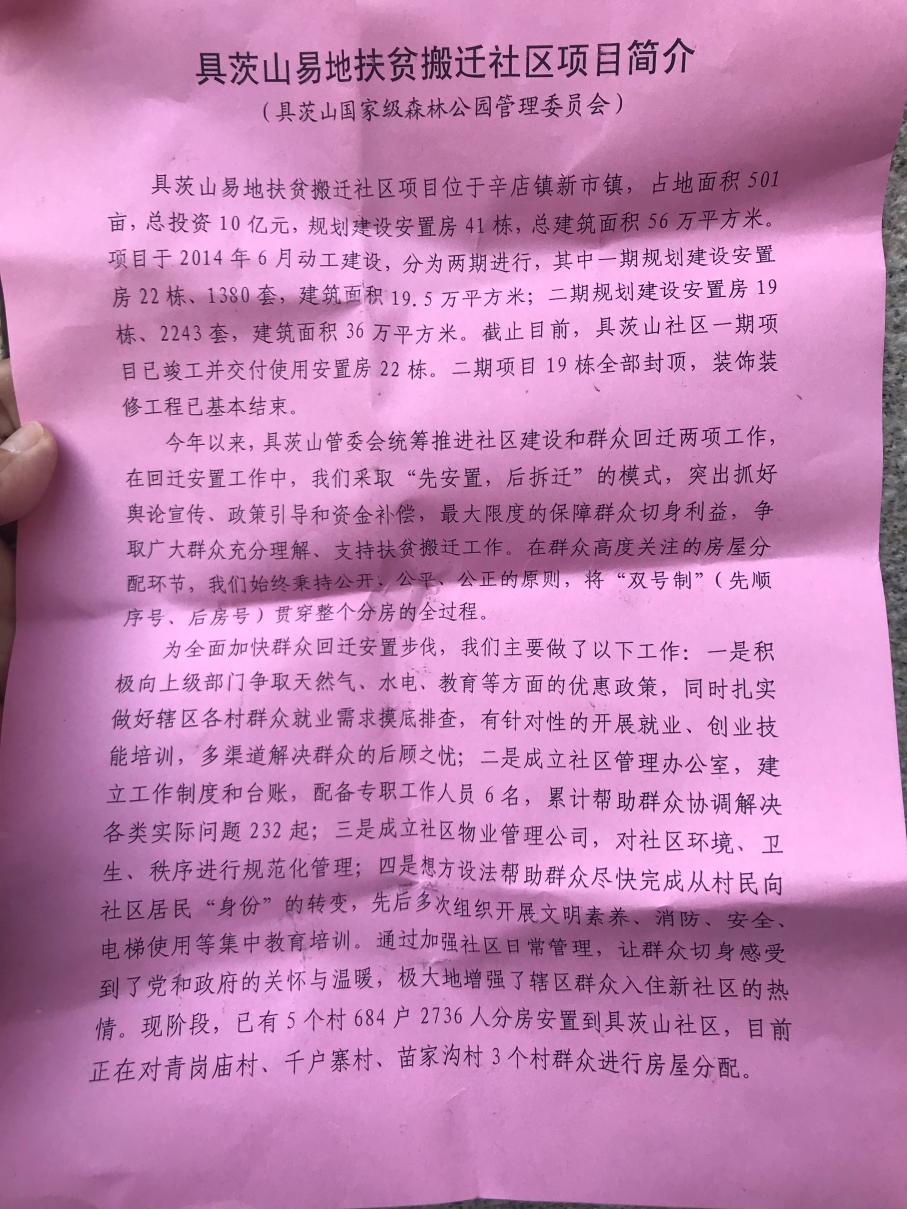 具茨山易地扶贫搬迁社区项目简介
（具茨山国家级森林公园管理委员会）
具茨山易地扶贫搬迁社区项目位于辛店镇新市镇，占地面积 501
亩，总投资 10 亿元，规划建设安置房 41 栋，总建筑面积 56 万平方米。
项目于 2014 年 6 月动工建设，分为两期进行，其中一期规划建设安置
房 22 栋、1380 套，建筑面积 19.5 万平方米；二期规划建设安置房 19
栋、2243 套，建筑面积 36 万平方米。截止目前，具茨山社区一期项
目已竣工并交付使用安置房 22 栋。二期项目 19 栋全部封顶，装饰装
修工程已基本结束。
今年以来，具茨山管委会统筹推进社区建设和群众回迁两项工作，
在回迁安置工作中，我们采取“先安置，后拆迁”的模式，突出抓好
舆论宣传、政策引导和资金补偿，最大限度的保障群众切身利益，争
取广大群众充分理解、支持扶贫搬迁工作。在群众高度关注的房屋分
配环节，我们始终秉持公开、公平、公正的原则，将“双号制”（先顺
序号、后房号）贯穿整个分房的全过程。
为全面加快群众回迁安置步伐，我们主要做了以下工作：一是积
极向上级部门争取天然气、水电、教育等方面的优惠政策，同时扎实
做好辖区各村群众就业需求摸底排查，有针对性的开展就业、创业技
能培训，多渠道解决群众的后顾之忧；二是成立社区管理办公室，建
立工作制度和台账，配备专职工作人员 6 名，累计帮助群众协调解决
各类实际问题 232 起；三是成立社区物业管理公司，对社区环境、卫
生、秩序进行规范化管理；四是想方设法帮助群众尽快完成从村民向
社区居民“身份”的转变，先后多次组织开展文明素养、消防、安全、
电梯使用等集中教育培训。通过加强社区日常管理，让群众切身感受
到了党和政府的关怀与温暖，极大地增强了辖区群众入住新社区的热
情。现阶段，已有 5 个村 684 户 2736 人分房安置到具茨山社区，目前
正在对青岗庙村、千户寨村、苗家沟村 3 个村群众进行房屋分配。